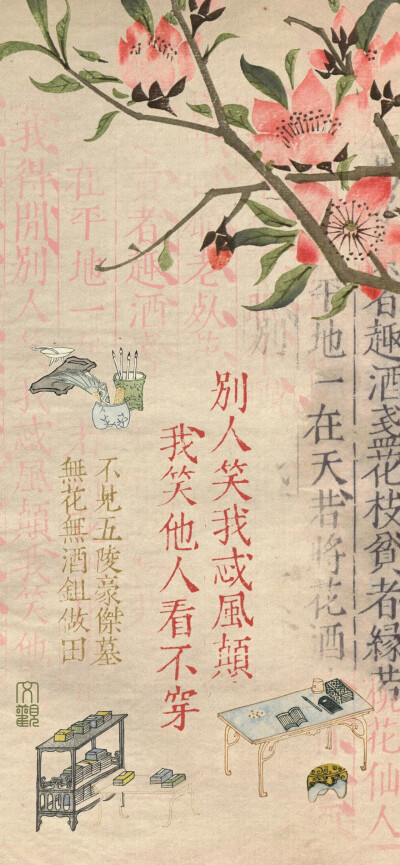 者趣酒盞花枝貧者緣若
桃花仙人
平地一在天若將花酒
別
別人笑我忒風顛
我笑他人看不穿
不見五陵豪傑墓
無花無酒鉏做田
老死
者趣酒
在平地一
我得閒別人笑我忒風顛我笑他
文觀